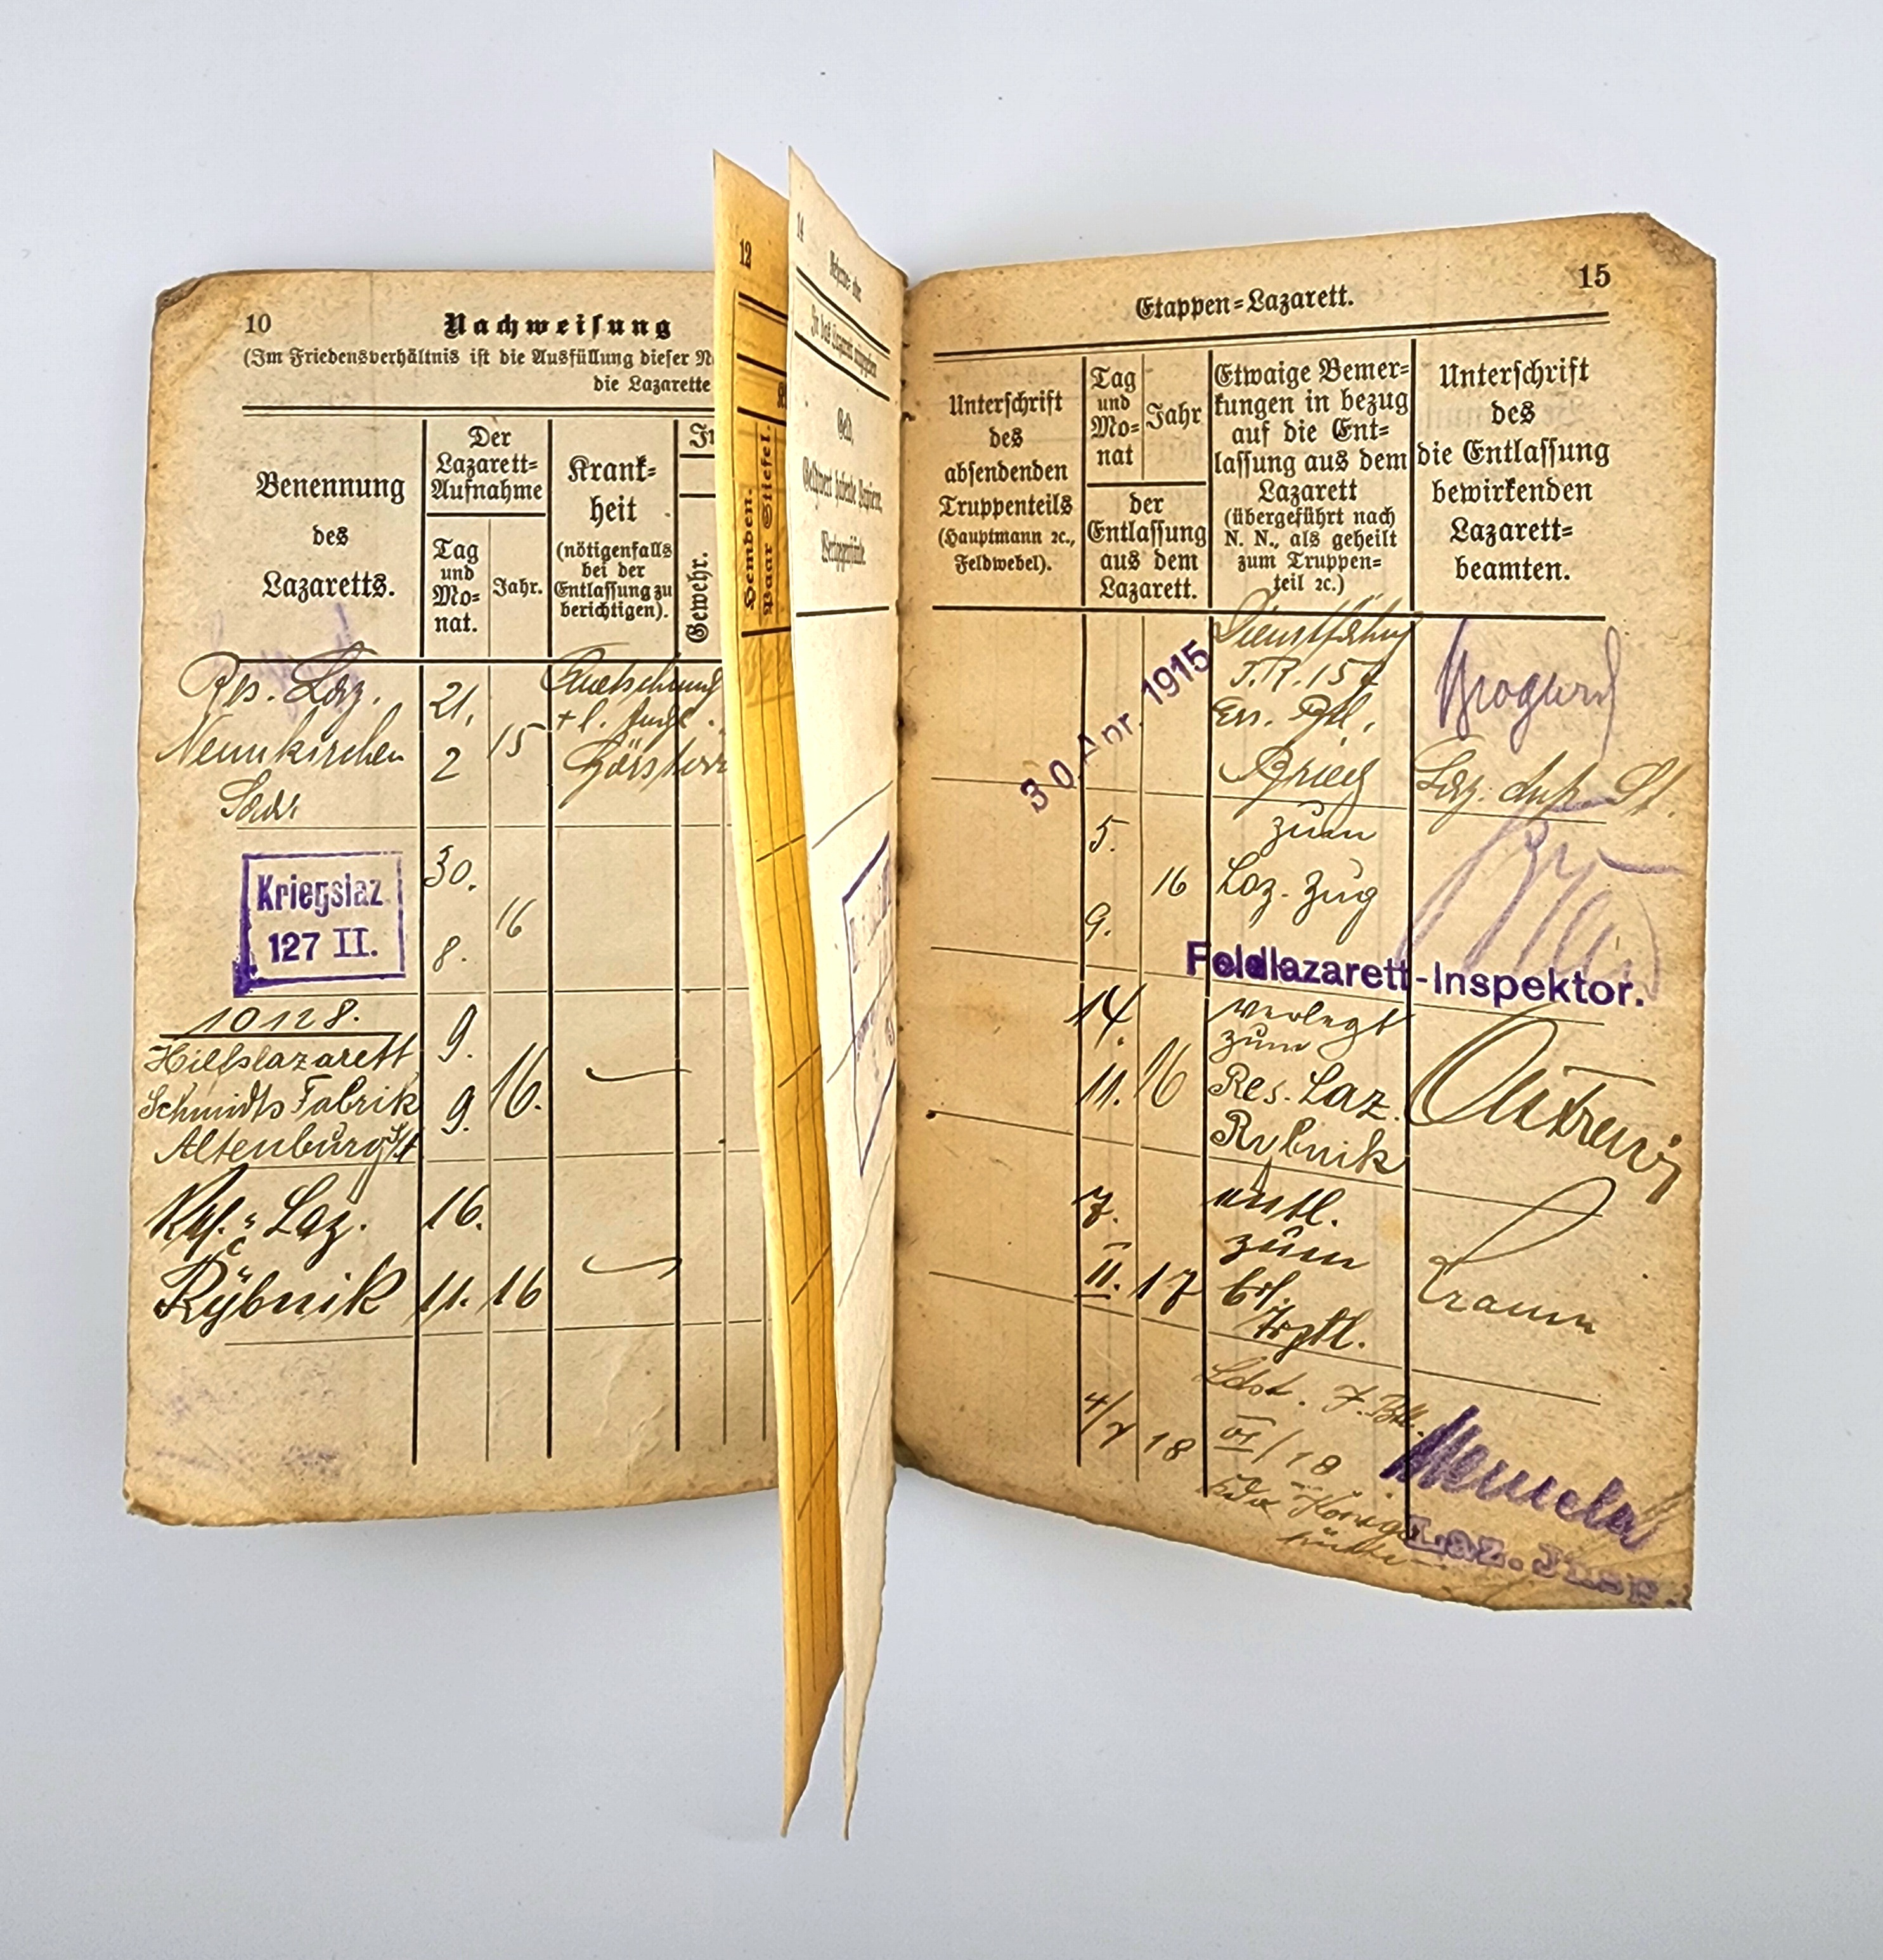 10
Nachweisung
(Im Friedensverhältnis ist die Ausfüllung dieser
die Lazarette
Benennung
des
Lazaretts.
Der
Lazarett=
Aufnahme
Tag
und
Mo=
nat.
Jahr.
Krank=
heit
(nötigenfalls
bei der
Entlassung zu
berichtigen).
Gewehr.
Res. Laz.
Neunkirchen
Saar
21.
2
15
Quetschung
Kriegslaz
127 II.
30.
8.
16
10128.
Hilfslazarett
Schmidts Fabrik
Altenburg
9.
9.
16.
Laz.
Rybnik
16.
11.
16
12
Hemden.
Paar Stiefel.
14
Geld,
Geldwert habende Papiere,
Wertgegenstände.
15
Etappen=Lazarett.
Unterschrift
des
absendenden
Truppenteils
(Hauptmann ꝛc.,
Feldwebel).
Tag
und
Mo=
nat
Jahr
der
Entlassung
aus dem
Lazarett.
Etwaige Bemer=
kungen in bezug
auf die Ent=
lassung aus dem
Lazarett
(übergeführt nach
N. N., als geheilt
zum Truppen=
teil ꝛc.)
Unterschrift
des
die Entlassung
bewirkenden
Lazarett=
beamten.
30 Apr. 1915
Dienstfähig
J.R. 157
Ers. Btl.
Brieg
5.
9.
16
zum
Laz. Zug
Feldlazarett-Inspektor.
14.
11.
16
verlegt
zum
Res. Laz.
Rybnik
7.
II.
17
entl.
zum
4/7
18
VI/18
Königs
hütte
Laz. Insp.